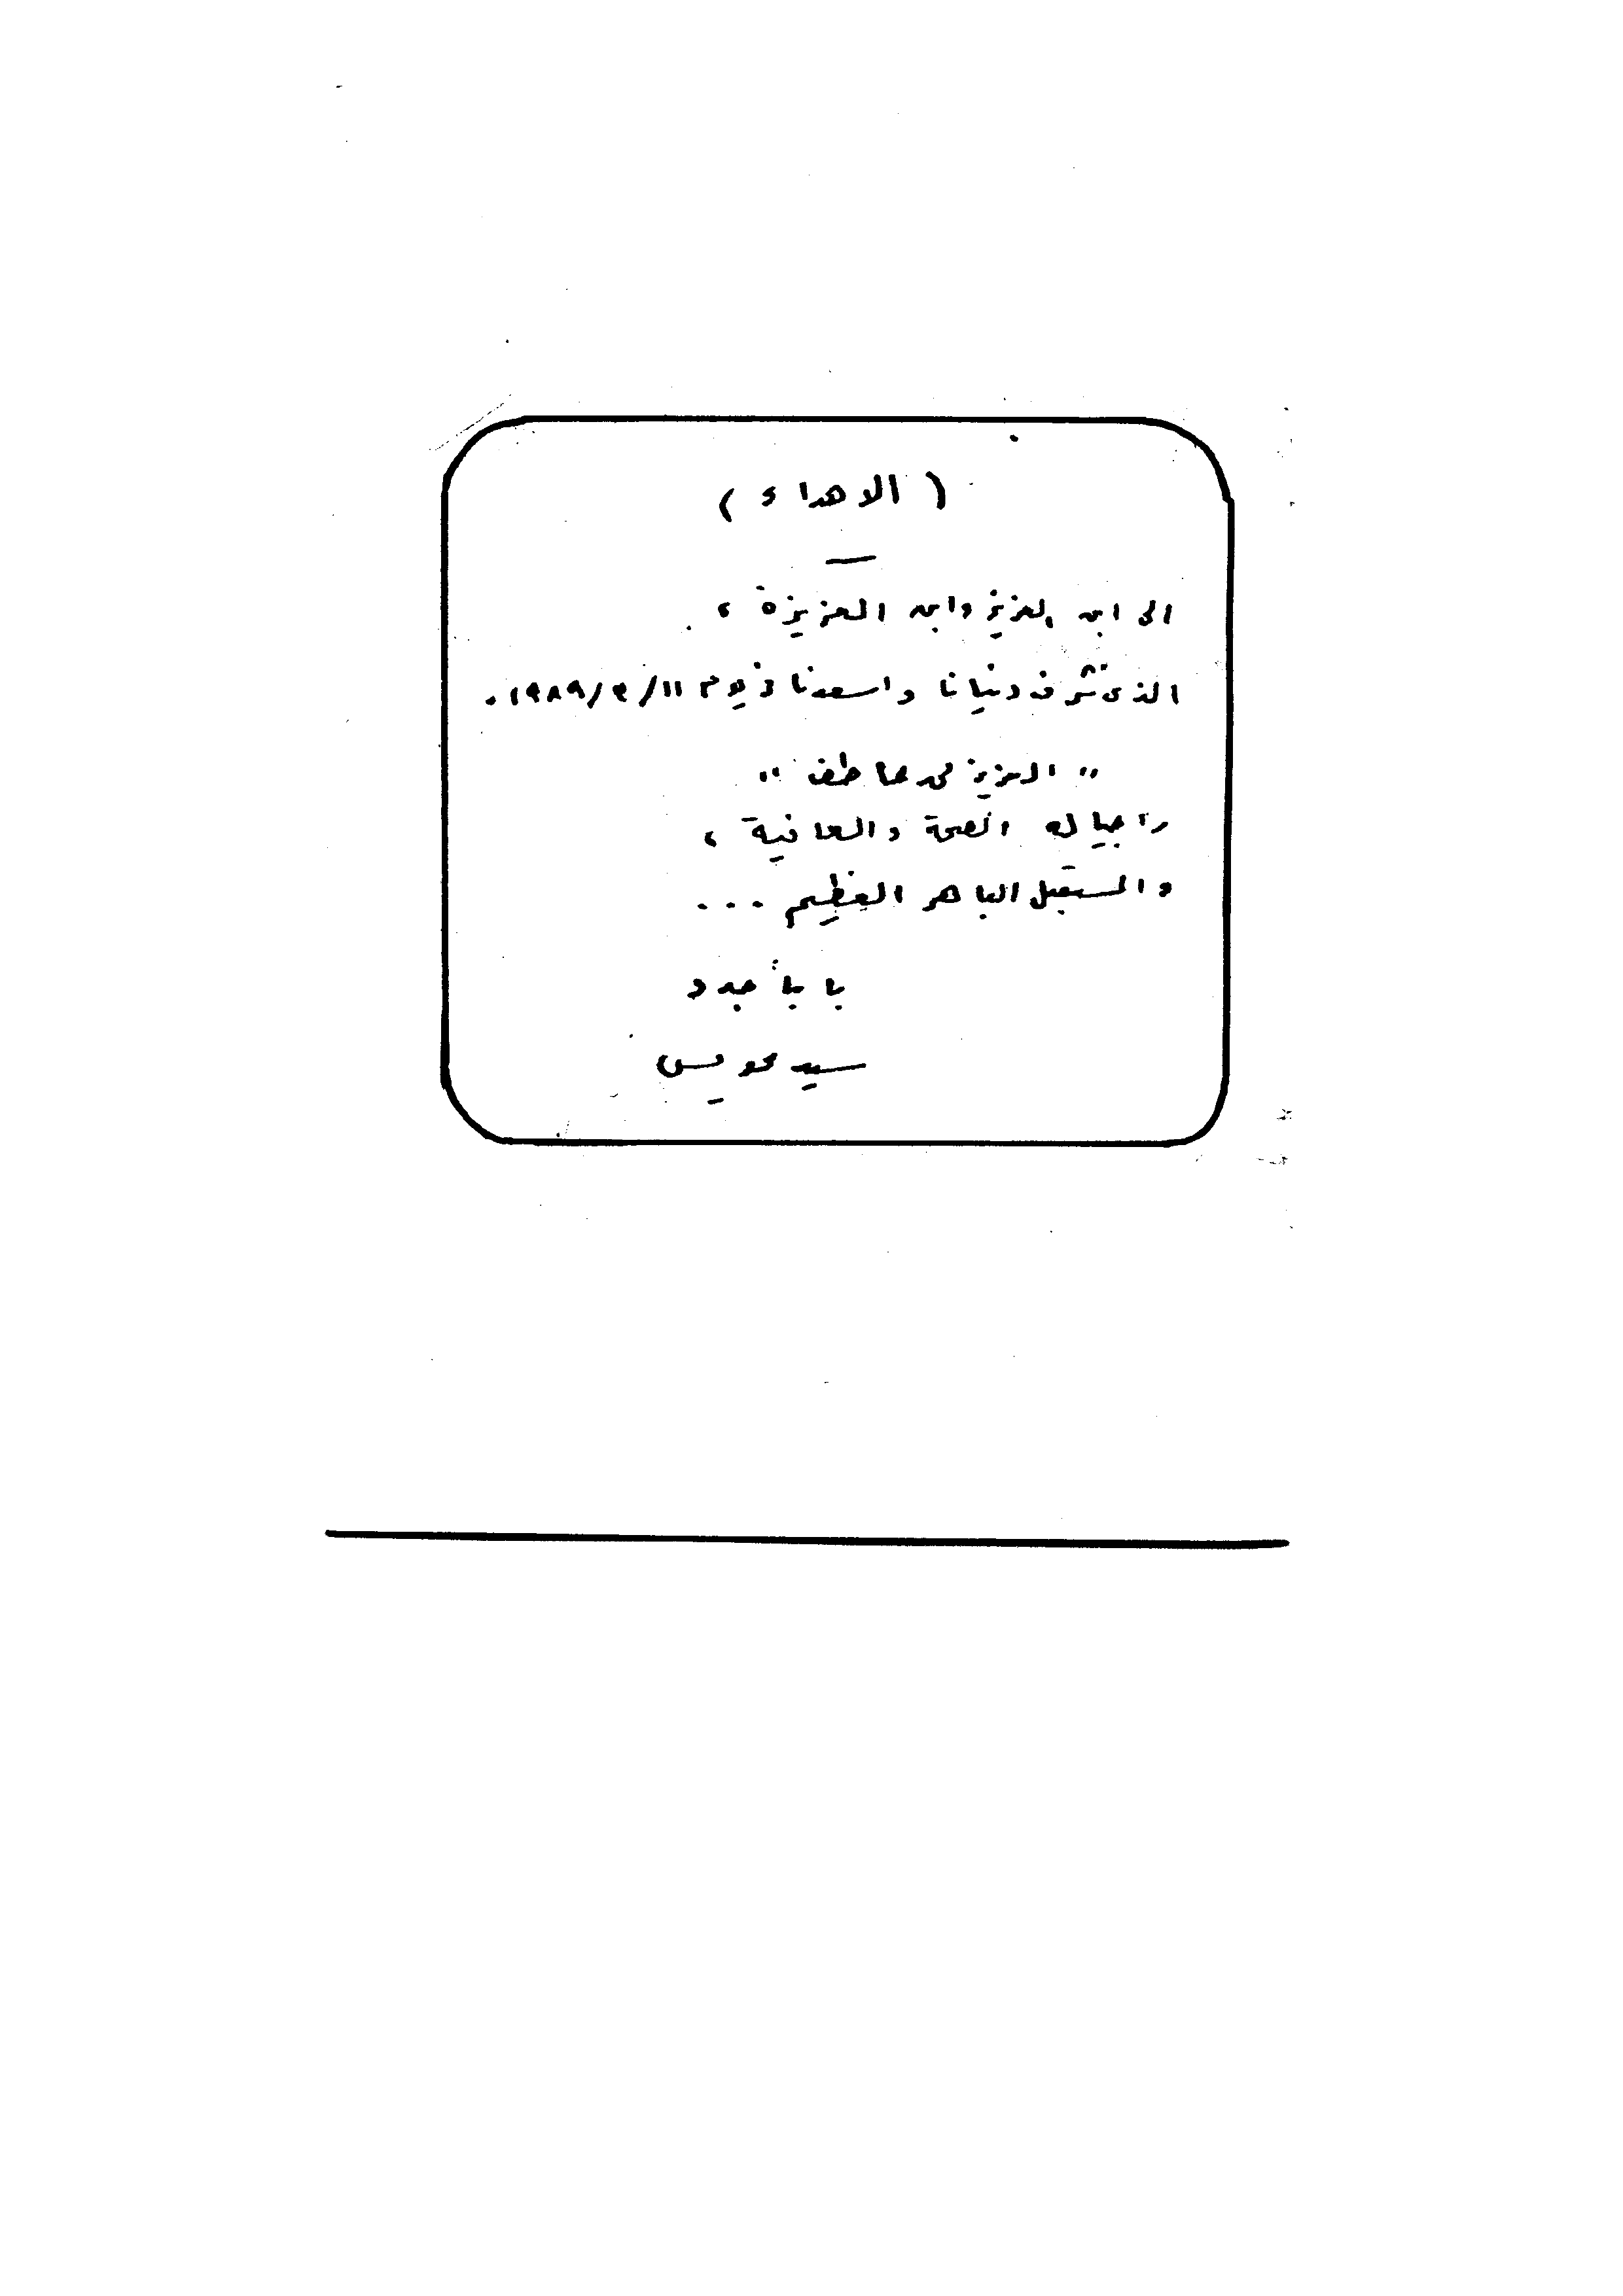 ( الاهداء )
الى ابن العزيز وابن العزيزة ،
الذى شرف دنيانا واسعدنا فى يوم ١١/٣/١٩٨٩.
" العزيز محمد عاطف "
راجيا له الصحة والعافية ،
والمستقبل الباهر العظيم ...
بابا جدد
سيد عويس